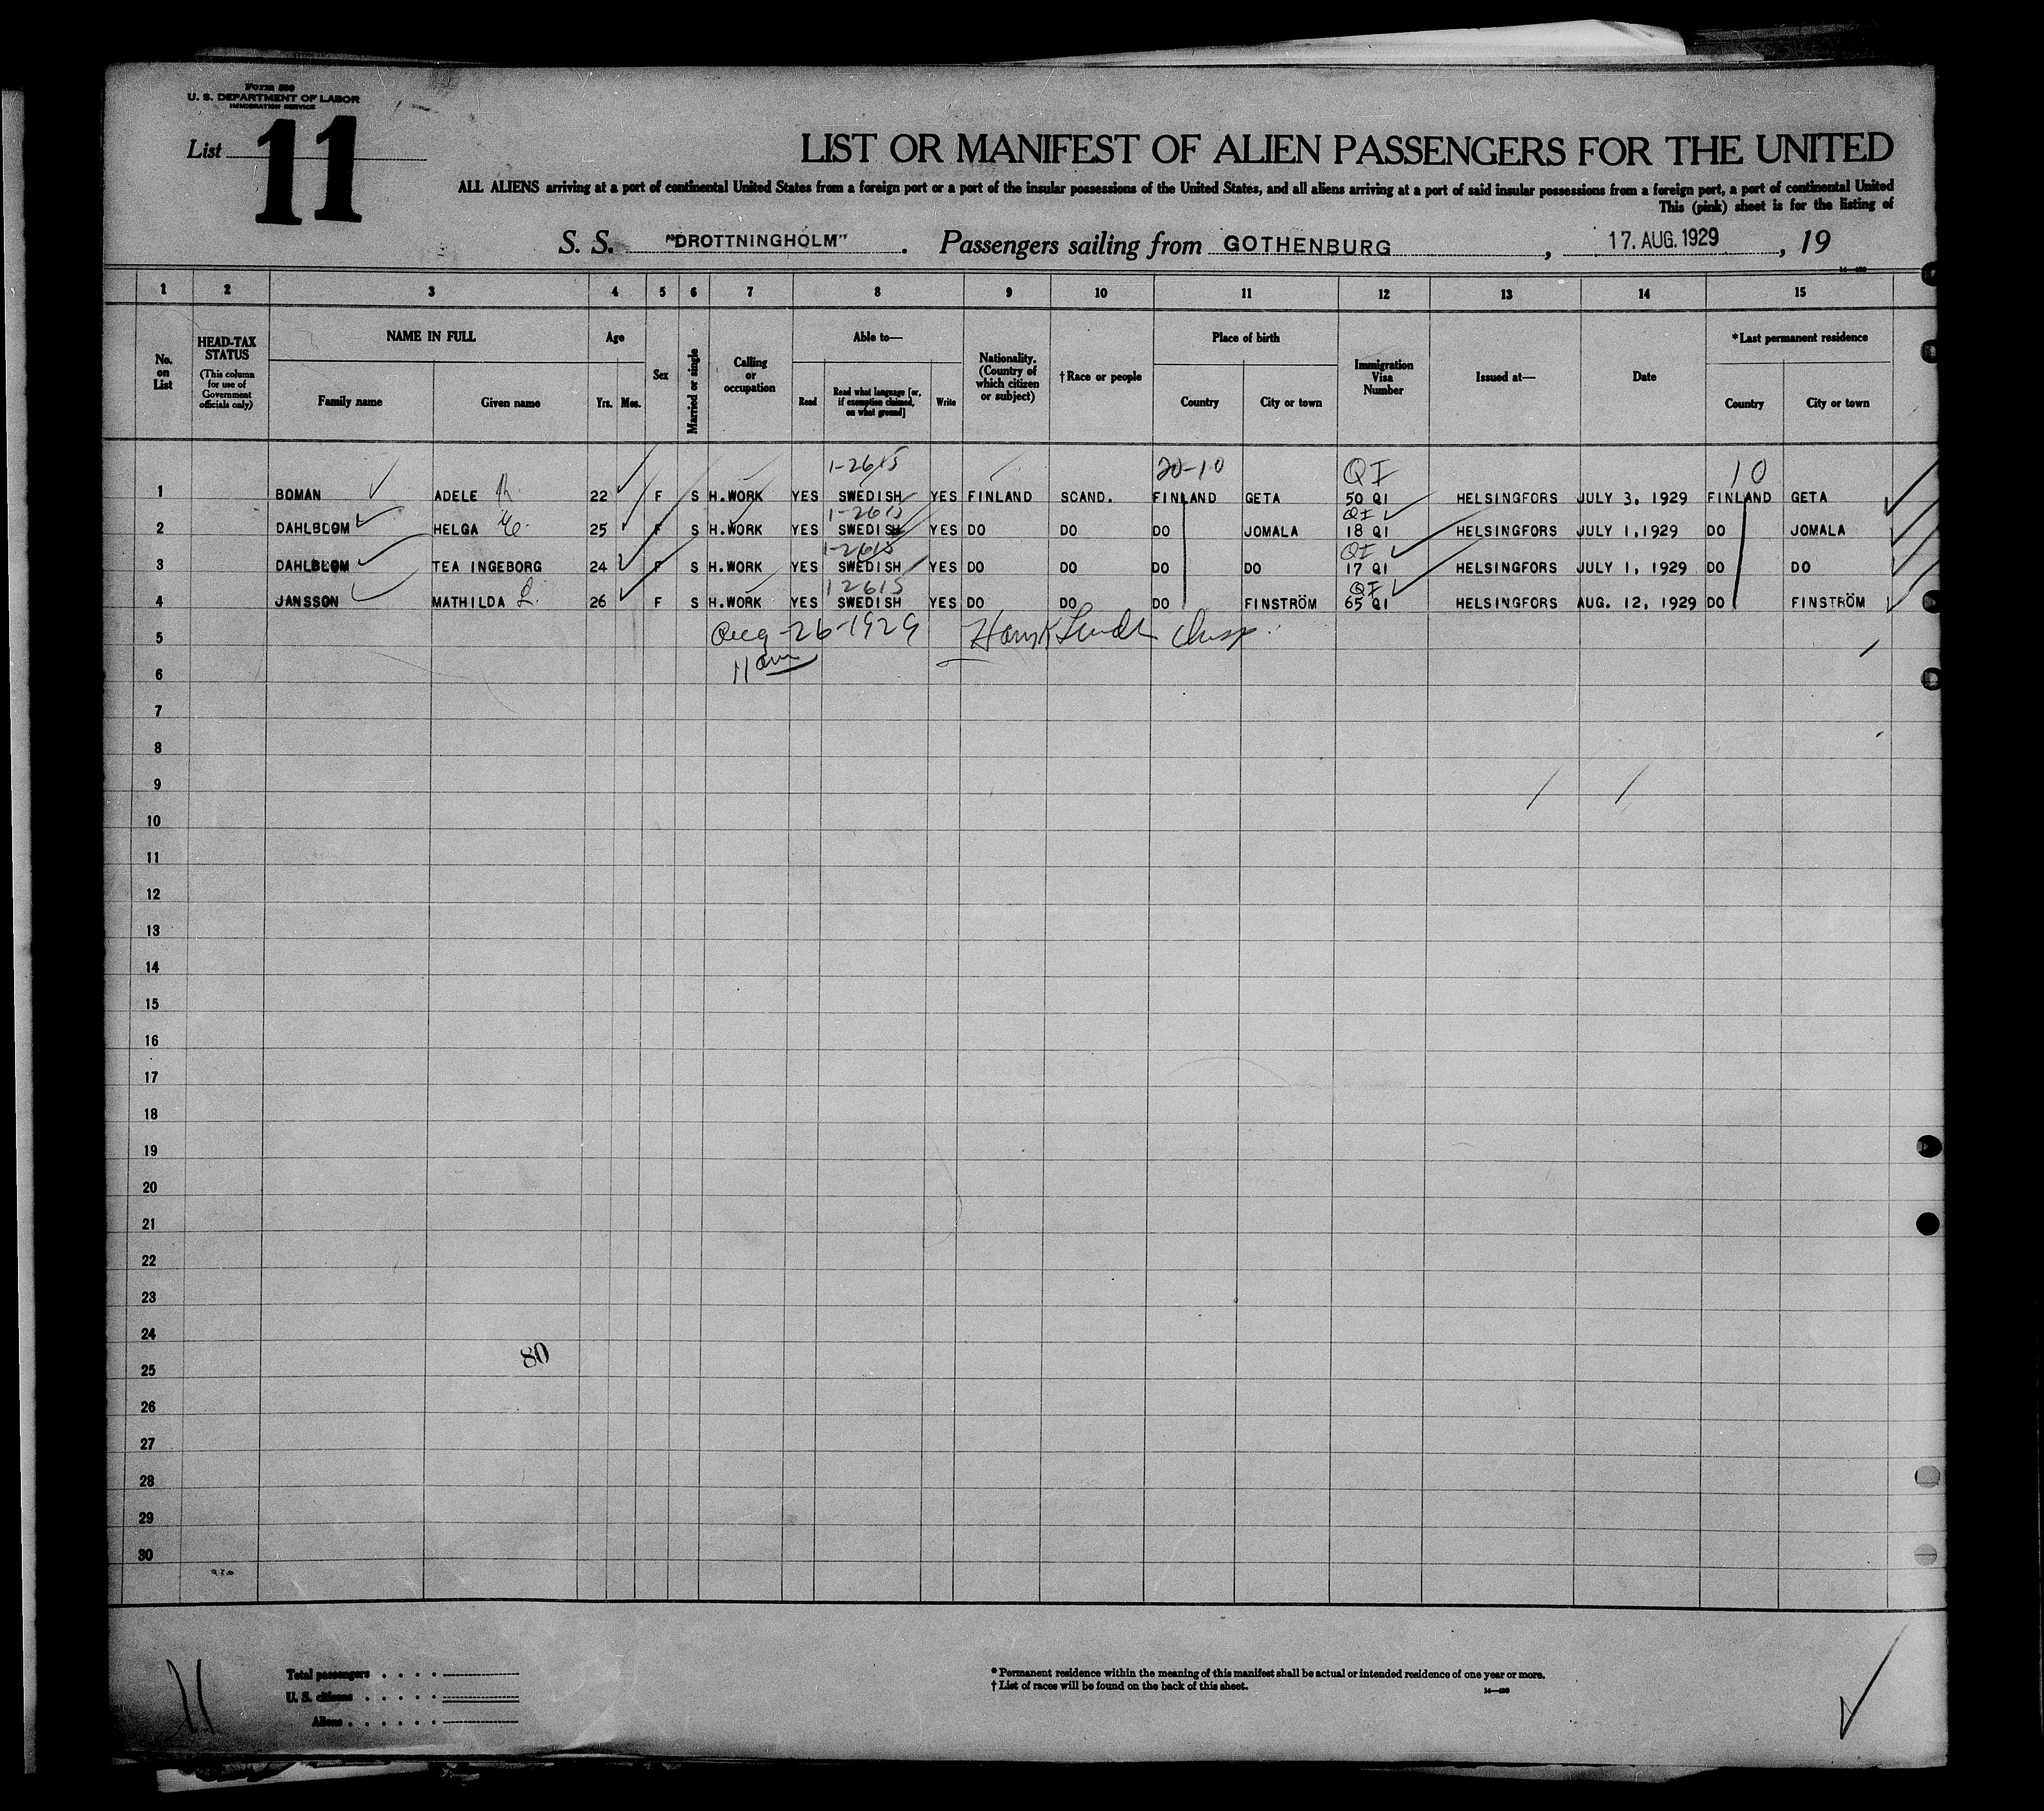 Form 500
U. S. DEPARTMENT OF LABOR
IMMIGRATION SERVICE
List 11
LIST OR MANIFEST OF ALIEN PASSENGERS FOR THE UNITED
ALL ALIENS arriving at a port of continental United States from a foreign port or a port of the insular possessions of the United States, and all aliens arriving at a port of said insular possessions from a foreign port, a port of continental United
This (pink) sheet is for the listing of
S. S. "DROTTNINGHOLM". Passengers sailing from GOTHENBURG, 17. AUG. 1929, 19
1 2 3 4 5 6 7 8 9 10 11 12 13 14 15
No. on List
HEAD-TAX STATUS (This column for use of Government officials only)
NAME IN FULL Family name Given name
Age Yrs. Mos.
Sex
Married or single
Calling or occupation
Able to— Read Read what language [or, if exemption claimed, on what ground] Write
Nationality. (Country of which citizen or subject)
† Race or people
Place of birth Country City or town
Immigration Visa Number
Issued at—
Date
*Last permanent residence Country City or town
1-2615 20-10 QI 10
1 BOMAN ADELE 22 F S H.WORK YES SWEDISH YES FINLAND SCAND. FINLAND GETA 50 QI HELSINGFORS JULY 3, 1929 FINLAND GETA
1-2615 QI
2 DAHLBLOM HELGA 25 F S H.WORK YES SWEDISH YES DO DO DO JOMALA 18 QI HELSINGFORS JULY 1,1929 DO JOMALA
1-2615 QI
3 DAHLBLOM TEA INGEBORG 24 F S H.WORK YES SWEDISH YES DO DO DO DO 17 QI HELSINGFORS JULY 1, 1929 DO DO
12615 QI
4 JANSSON MATHILDA L. 26 F S H.WORK YES SWEDISH YES DO DO DO FINSTRÖM 65 QI HELSINGFORS AUG. 12, 1929 DO FINSTRÖM
5 Aug-26-1929
11 am
6
7
8
9
10
11
12
13
14
15
16
17
18
19
20
21
22
23
24
80
25
26
27
28
29
30
11
Total passengers
U. S. citizens
Aliens
* Permanent residence within the meaning of this manifest shall be actual or intended residence of one year or more.
† List of races will be found on the back of this sheet.